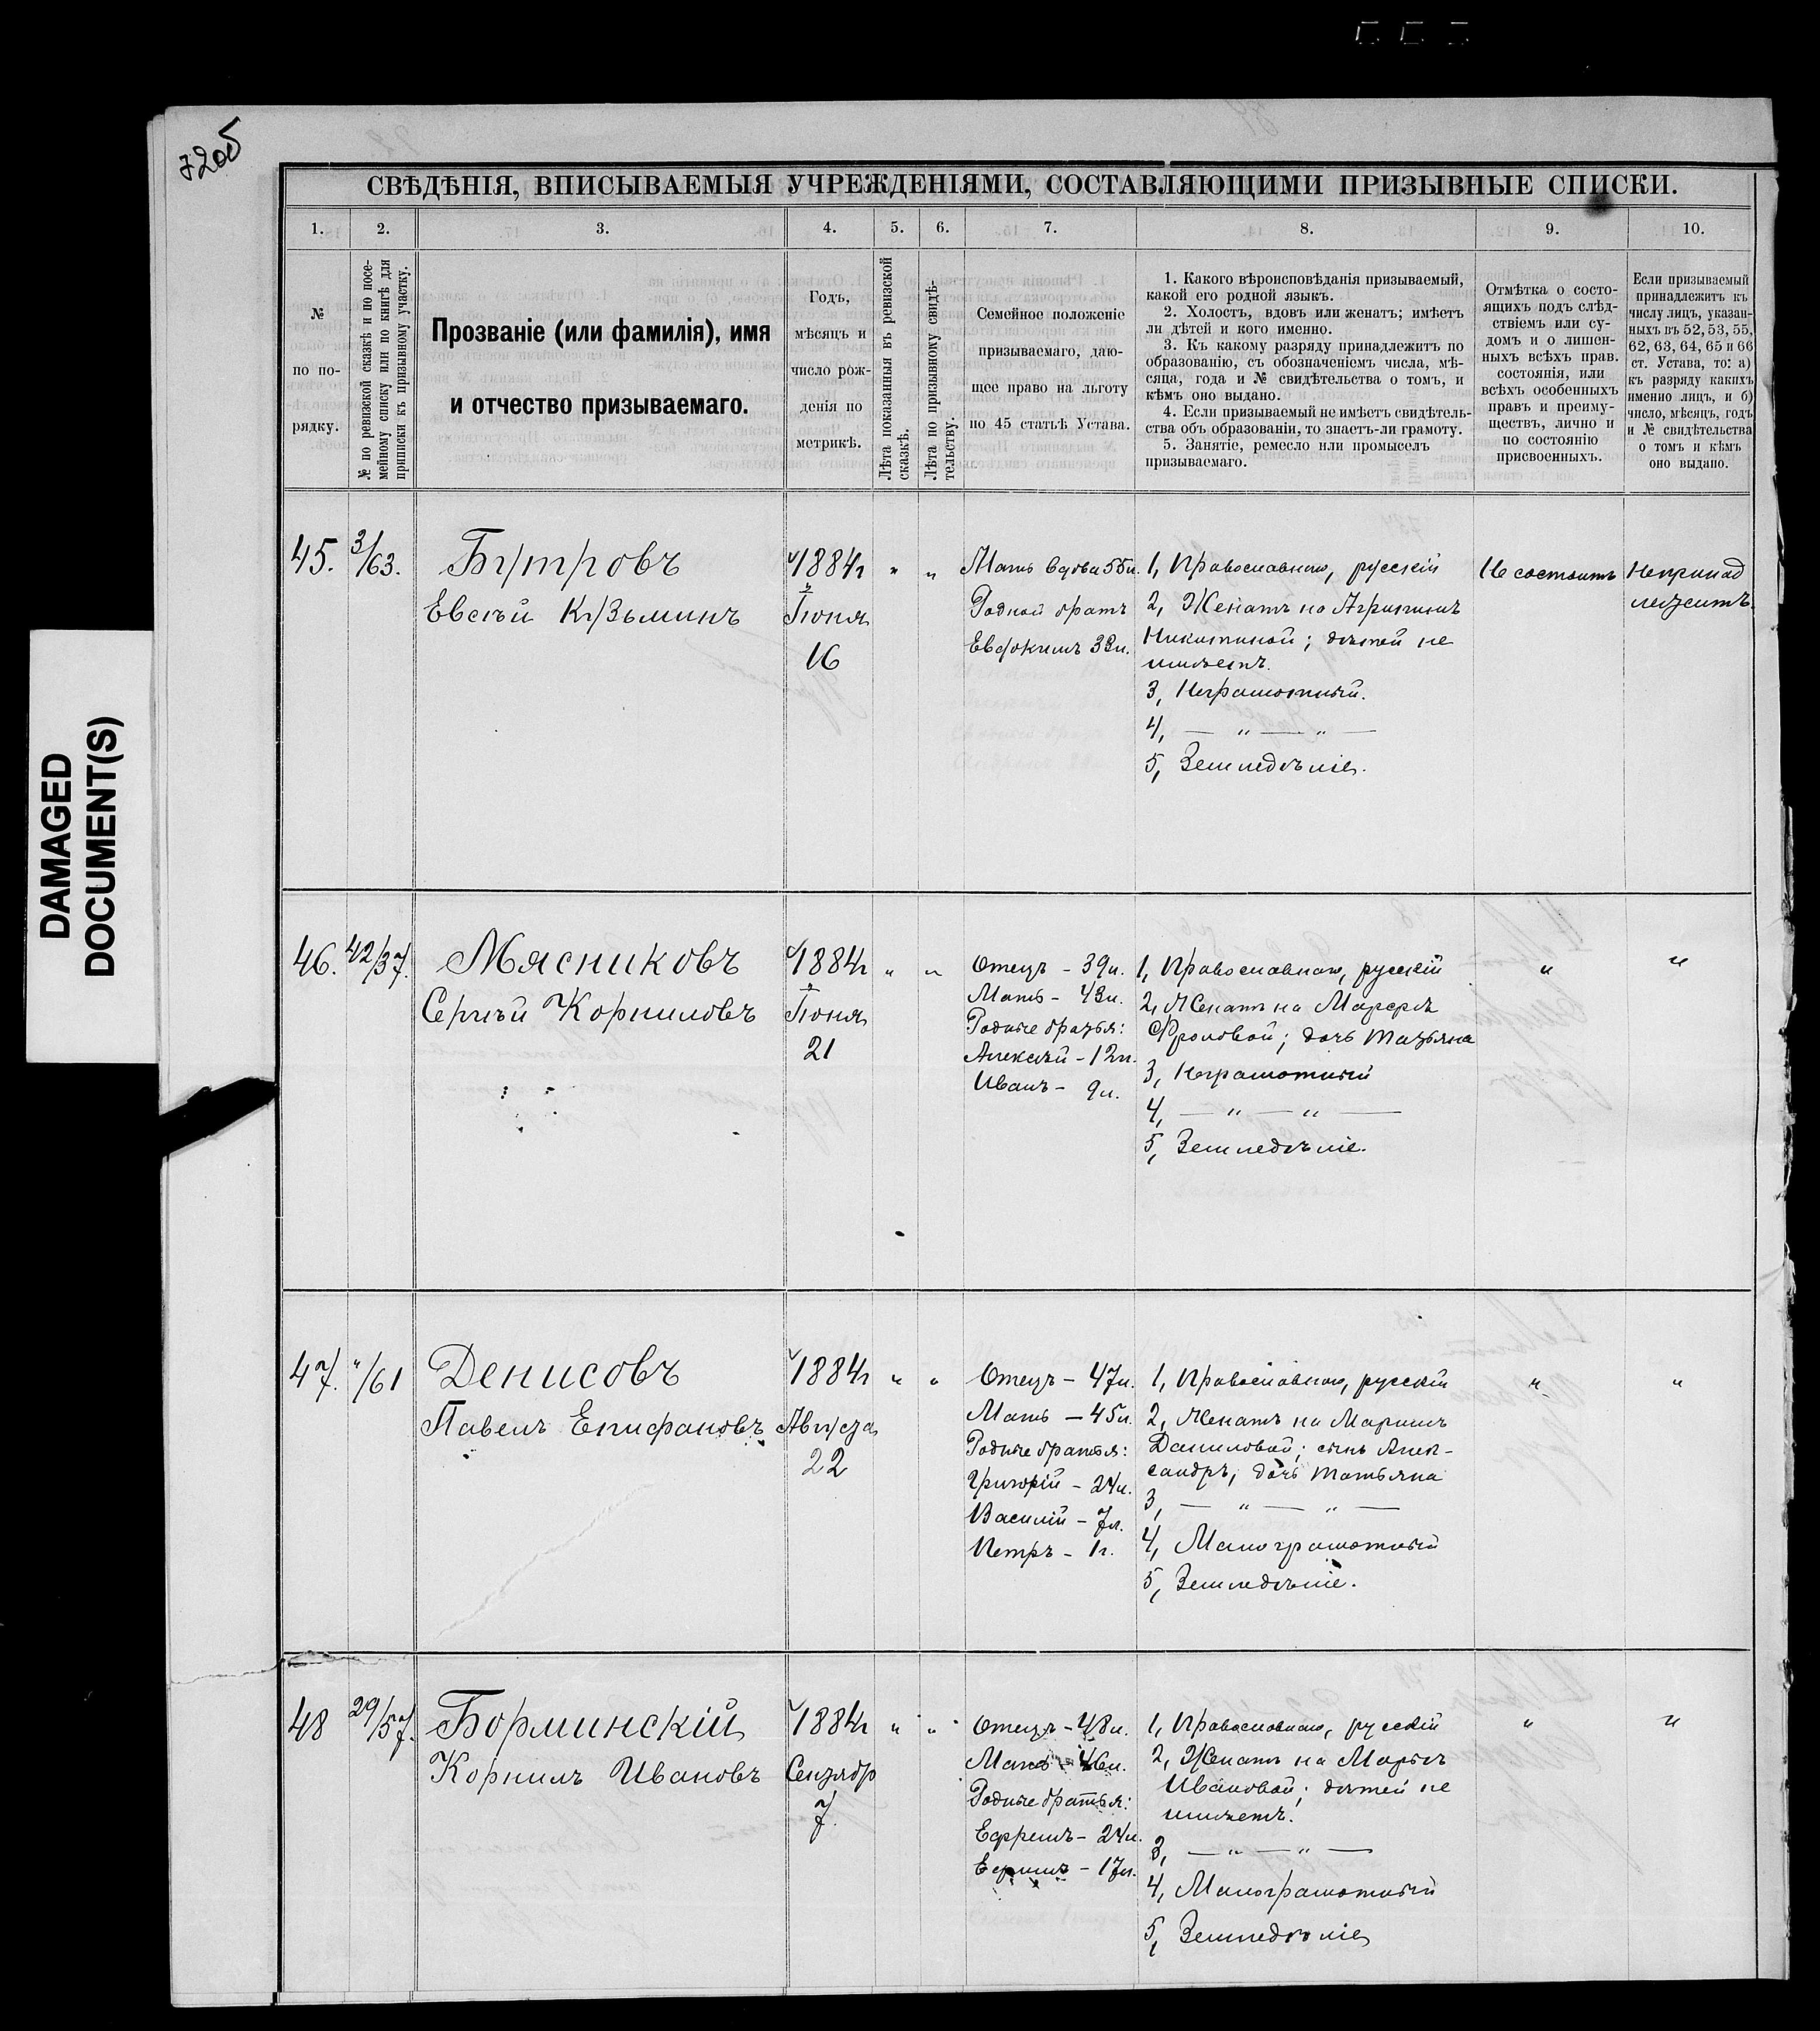 72об
DAMAGED
DOCUMENT(S)
СВѢДѢНІЯ, ВПИСЫВАЕМЫЯ УЧРЕЖДЕНІЯМИ, СОСТАВЛЯЮЩИМИ ПРИЗЫВНЫЕ СПИСКИ.
1. 2. 3. 4. 5. 6. 7. 8. 9. 10.
№
по по-
рядку.
№ по ревизской сказкѣ и по посе-
мейному списку или по книгѣ для
приписки къ призывному участку.
Прозваніе (или фамилія), имя
и отчество призываемаго.
Годъ,
мѣсяцъ и
число рож-
денія по
метрикѣ.
Лѣта показанныя въ ревизской
сказкѣ.
Лѣта по призывному свидѣ-
тельству.
Семейное положеніе
призываемаго, даю-
щее право на льготу
по 45 статьѣ Устава.
1. Какого вѣроисповѣданія призываемый,
какой его родной языкъ.
2. Холостъ, вдовъ или женатъ; имѣетъ
ли дѣтей и кого именно.
3. Къ какому разряду принадлежитъ по
образованію, съ обозначеніемъ числа, мѣ-
сяца, года и № свидѣтельства о томъ, и
кѣмъ оно выдано.
4. Если призываемый не имѣетъ свидѣтель-
ства объ образованіи, то знаетъ-ли грамоту.
5. Занятіе, ремесло или промыселъ
призываемаго.
Отмѣтка о состо-
ящихъ подъ слѣд-
ствіемъ или су-
домъ и о лишен-
ныхъ всѣхъ прав.
состоянія, или
всѣхъ особенныхъ
правъ и преиму-
ществъ, лично и
по состоянію
присвоенныхъ.
Если призываемый
принадлежитъ къ
числу лицъ, указан-
ныхъ въ 52, 53, 55,
62, 63, 64, 65 и 66
ст. Устава, то: а)
къ разряду какихъ
именно лицъ, и б)
число, мѣсяцъ, годъ
и № свидѣтельства
о томъ и кѣмъ
оно выдано.
45. 3/63.
Бутровъ
Евсѣй Кузьминъ
1884г
Іюня
16
" "
Мать вдова 55л.
Родной братъ
Евдокимъ 33л.
1, Православнаго, русскій
2, Женатъ на Агрипинѣ
Никитиной; дѣтей не
имѣетъ.
3, Неграмотный.
4, — " — " —
5, Земледѣліе.
Не состоитъ
Непринад
лежитъ.
46. 42/37.
Мясниковъ
Сергѣй Корниловъ
1884г
Іюня
21
" "
Отецъ - 39л.
Мать - 43л.
Родные братья:
Алексѣй - 12л.
Иванъ - 9л.
1, Православнаго, русскій
2, Женатъ на Марѳѣ
Фроловой; дочь Татьяна
3, Неграмотный
4, — " — " —
5, Земледѣліе.
" "
47. "/61
Денисовъ
Павелъ Епифановъ
1884г
Августа
22
" "
Отецъ - 47л.
Мать - 45л.
Родные братья:
Григорій - 24л.
Василій - 7л.
Петръ - 1г.
1, Православнаго, русскій
2, Женатъ на Маринѣ
Даниловой; сынъ Алек-
сандръ, дочь Татьяна
3, — " — " —
4, Малограмотный
5, Земледѣліе.
" "
48 29/57.
Борминскій
Корнилъ Ивановъ
1884г
Сентябр
7.
" "
Отецъ - 48л.
Мать - 46л.
Родные братья:
Ефремъ - 24л.
Ефимъ - 17л.
1, Православнаго, русскій
2, Женатъ на Марьѣ
Ивановой; дѣтей не
имѣетъ.
3, — " — " —
4, Малограмотный
5, Земледѣліе
" "